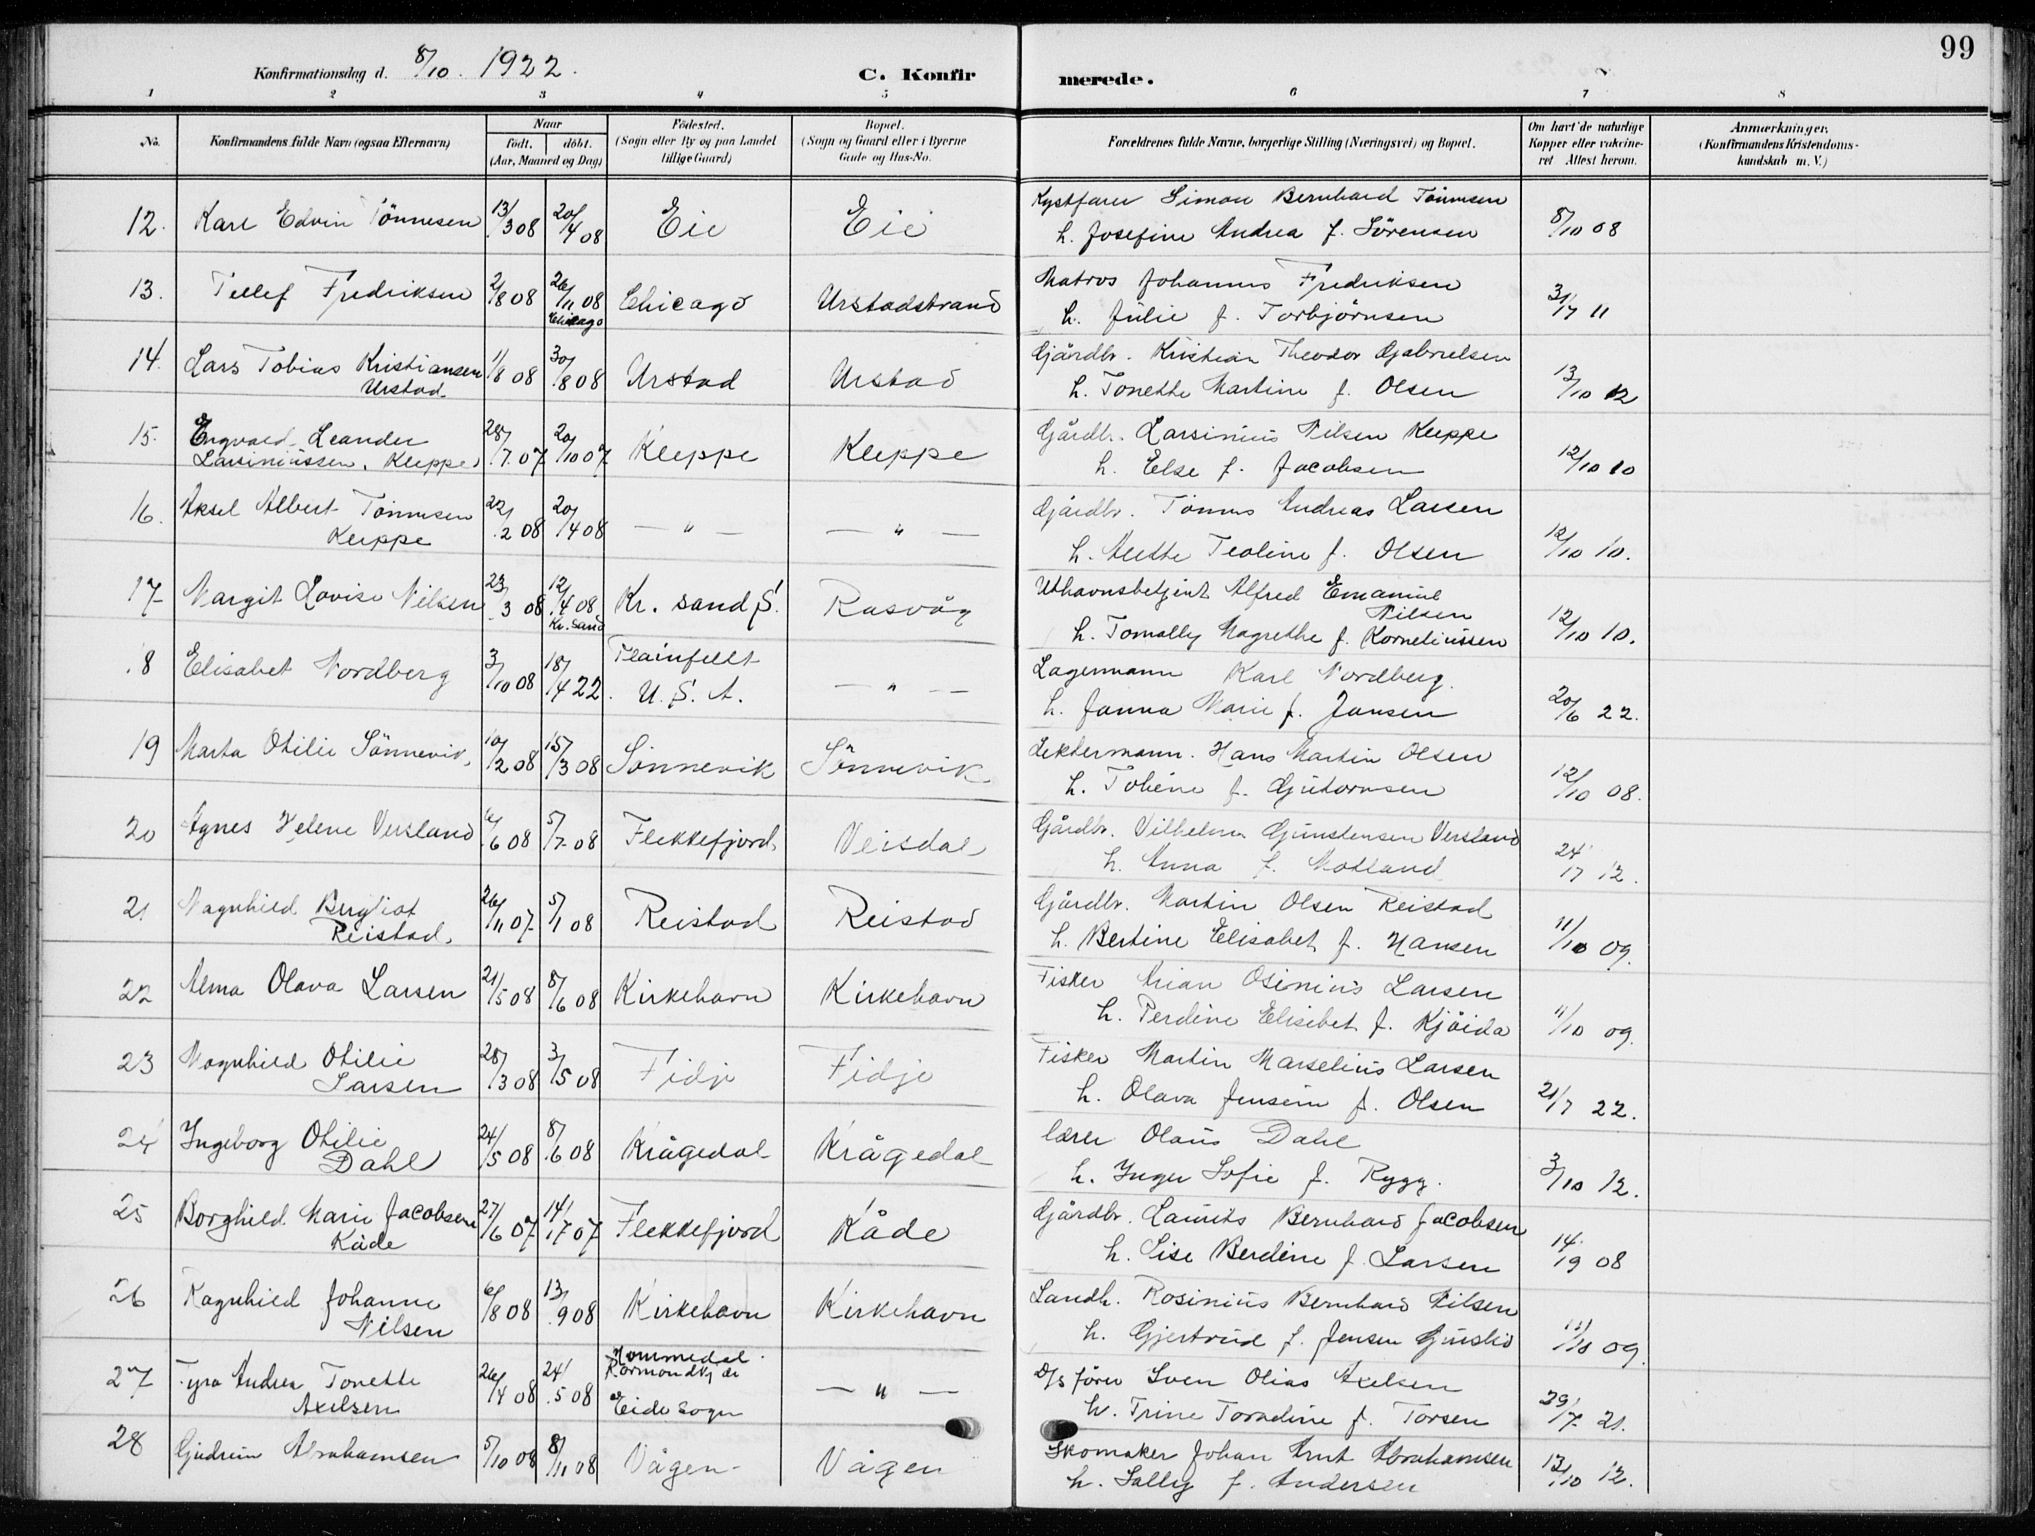 99
Konfirmationsdag d. 8/10. 1922. C. Konfirmerede.
1 2 3 4 5 6 7 8
No. Konfirmandens fulde Navn (ogsaa Efternavn) Naar født. døbt. (Aar, Maaned og Dag) Fødested. (Sogn eller By og paa Landet tillige Gaard) Bopæl. (Sogn og Gaard eller i Byerne Gade og Hus-No. Forældrenes fulde Navne, borgerlige Stilling (Næringsvei) og Bopæl. Om havt de naturlige Kopper eller vakcineret Attest herom. Anmærkninger. (Konfirmandens Kristendomskundskab m. V.)
12. Karl Edvin Tönnesen 13/3 08 20/4 08 Eie Eie Kystfarer Simon Bernhard Tönnesen
h. Josefine Andrea f. Sörensen 8/10 08
13. Tellef Fredriksen 2/8 08 26/11 08 Chicago Chicago Urstadstrand Matros Johannes Fredriksen
h. Julie f. Torbjörnsen 31/7 11
14. Lars Tobias Kristiansen 1/8 08 30/8 08 Urstad Urstad Gårdbr. Kristian Theodor Gabrielsen
Urstad h. Tonette Martine f. Olsen 13/10 12
15. Engvald Leander 28/7 07 20/10 07 Kleppe Kleppe Gårdbr. Larsinius Nilsen Kleppe
Larsiniussen, Kleppe h. Else f. Jacobsen 12/10 10
16. Aksel Albert Tönnesen 22/2 08 20/4 08 — " — — " — Gårdbr. Tönnes Andreas Larsen
Kleppe h. Teoline f. Olsen 12/10 10.
17 Margit Lovise Nilsen 23/3 08 12/4 08 Kr. sand Kr. sand S. Rasvåg Uthavnsbetjent Alfred Emanuel
Nilsen
h. Tomally Magrethe f. Korneliussen 12/10 10.
18 Elisabet Nordberg 3/10 08 18/4 22 Plainfield U. S. A. — " — Lagermann Karl Nordberg.
h. Janna Marie f. Jansen 20/6 22.
19 Marta Otilie Sönnevik, 10/2 08 15/3 08 Sönnevik Sönnevik Lektermann. Hans Martin Olsen
h. Tobine f. Gutormsen 12/10 08.
20 Agnes Helene Versland 6/6 08 5/7 08 Flekkefjord Veisdal Gårdbr. Vilhelm Gunstensen Versland
h. Anna f. Motland 24/7 12.
21 Magnhild Bergliot 26/11 07 5/1 08 Reistad Reistad Gårdbr. Martin Olsen Reistad
Reistad. h. Bertine Elisabet f. Hansen 11/10 09.
22 Alma Olava Larsen 21/5 08 8/6 08 Kirkehavn Kirkehavn Fisker Arian Osinius Larsen
h. Perdine Elisebet f. 11/10 09.
23 Magnhild Otilie 28/3 08 3/5 08 Fidje Fidje Fisker Martin Marselius Larsen
Larsen h. Olava Jensine f. Olsen 21/7 22.
24 Ingeborg Otilie 24/5 08 8/6 08 Krågedal Krågedal lærer Olaus Dahl
Dahl h. Inger Sofie f. Rygg. 3/10 12.
25 Borghild Marie Jacobsen 27/6 07 14/7 07 Flekkefjord Kåde Gårdbr. Laurits Bernhard Jacobsen
Kåde h. Lise Berdine f. Larsen 14/9 08
26 Ragnhild Johanne 6/8 08 13/9 08 Kirkehavn Kirkehavn Landh. Rosinius Bernhard Nilsen
Nilsen h. Gjertrud f. Jensen 11/10 09.
27 Tyra Andrea Tonette 26/4 08 24/5 08 Hommedal Eide sogn — " — D/s förer Sven Olias Axelsen
Axelsen h. Trine Toradine f. Torsen 29/7 21.
28 Gudrun Abrahamsen 5/10 08 8/11 08 Vågen Vågen Skomaker Johan Arnt Abrahamsen
h. Sally f. Andersen 12/10 12.